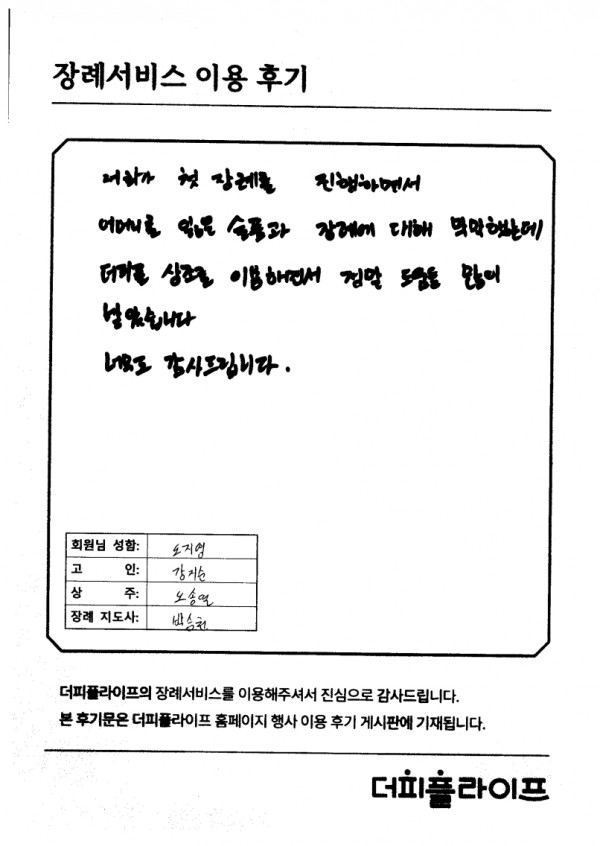 장례서비스 이용 후기
저희가 첫 장례를 진행하면서
어머니를 잃은 슬픔과 장례에 대해 막막했는데
더피플 상조를 이용하면서 정말 도움을 많이
받았습니다
너무도 감사드립니다.
회원님 성함: 오지영
고 인: 강지순
상 주: 오송열
장례 지도사: 박승천
더피플라이프의 장례서비스를 이용해주셔서 진심으로 감사드립니다.
본 후기문은 더피플라이프 홈페이지 행사 이용 후기 게시판에 기재됩니다.
더피플라이프